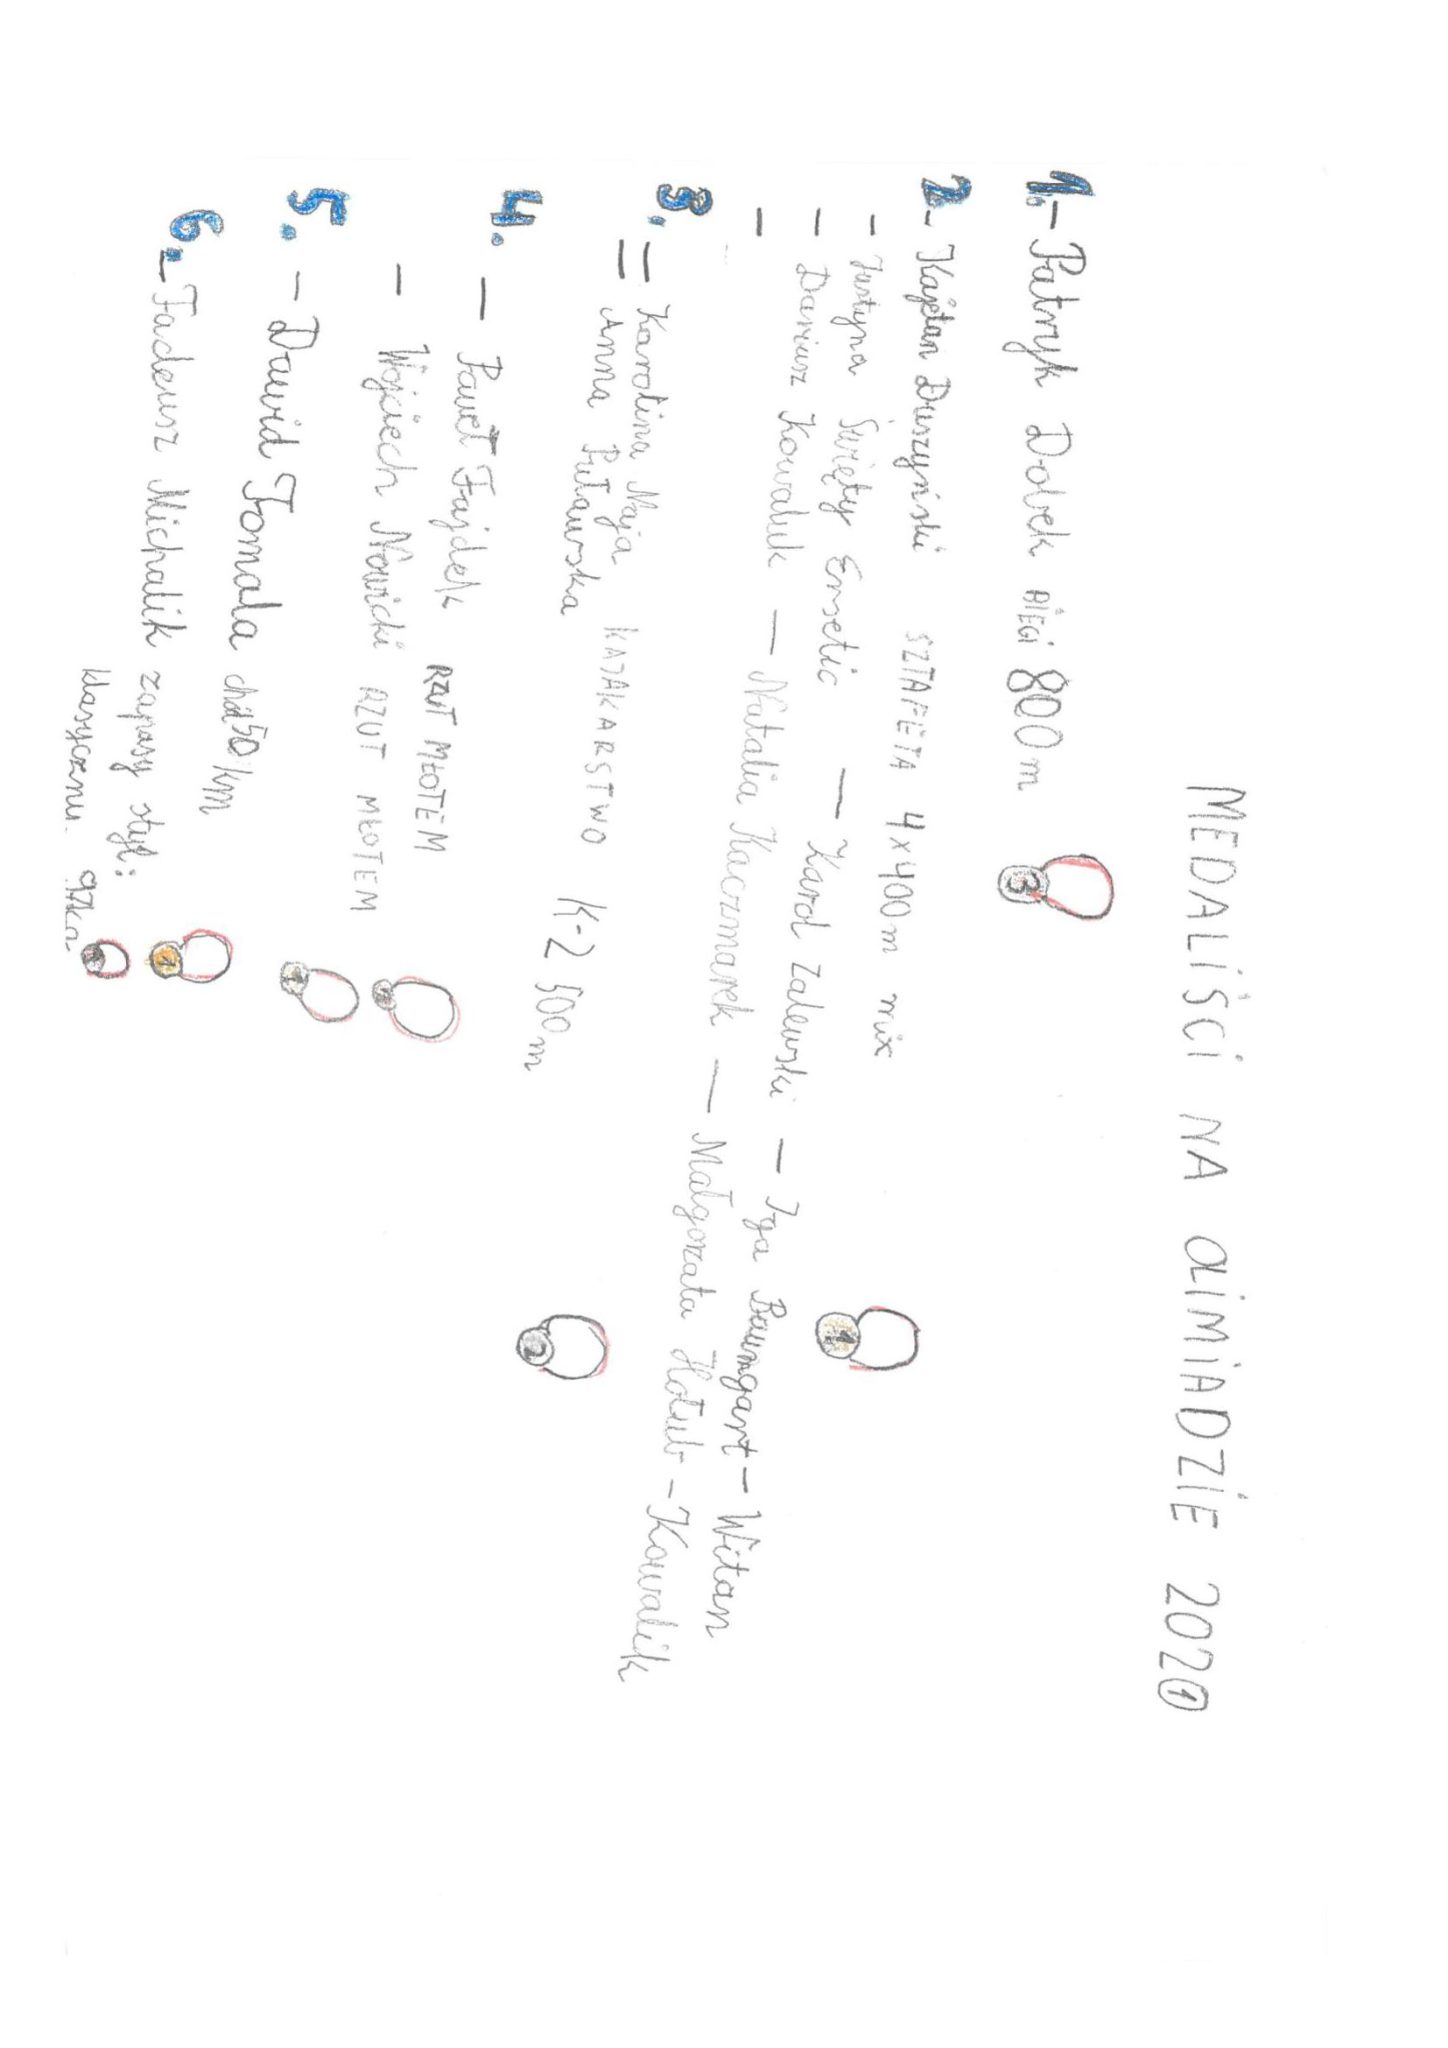 MEDALIŚCI NA OLIMIADZIE 2021
1. - Patryk Dobek BIEGI 800 m
3
2. - Kajetan Duszyński SZTAFETA 4x400 m mix
- Justyna Święty Ersetic - Karol Zalewski - Iga Baumgart - Witan
1
- Dariusz Kowaluk - Natalia Kaczmarek - Małgorzata Hołub - Kowalik
-
3. - Karolina Naja
- Anna Puławska KAJAKARSTWO K-2 500 m
4. - Paweł Fajdek RZUT MŁOTEM
- Wojciech Nowicki RZUT MŁOTEM
1
5. - Dawid Tomala chód 50 km
1
6. - Tadeusz Michalik zapasy styl:
klasyczny 97kg